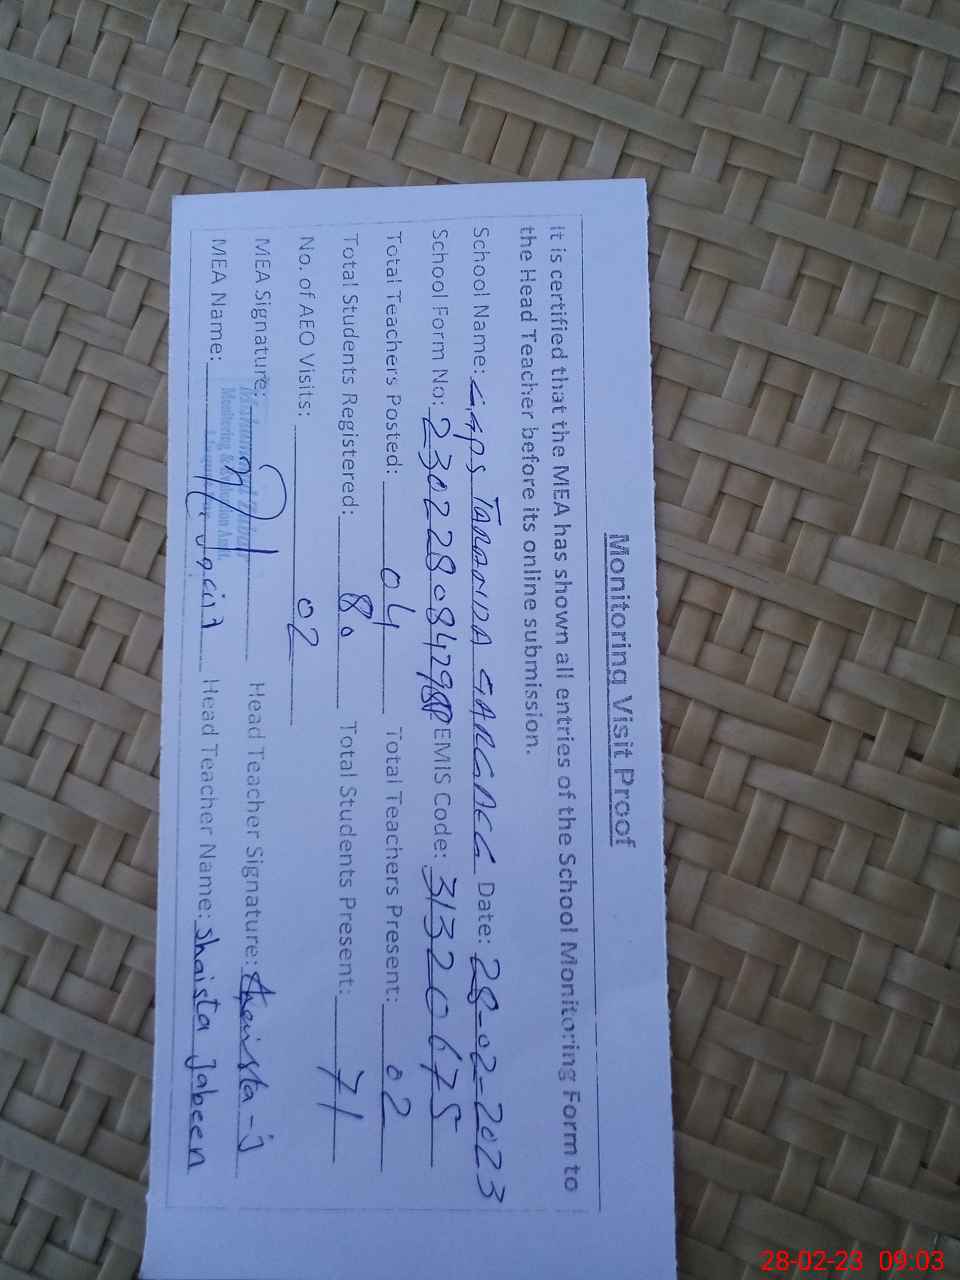 Monitoring Visit Proof
It is certified that the MEA has shown all entries of the School Monitoring Form to
the Head Teacher before its online submission.
School Name: GGPS TARANDA GARGAEG Date: 28-02-2023
School Form No: EMIS Code: 31320675
Total Teachers Posted: 04 Total Teachers Present: 02
Total Students Registered: 80 Total Students Present: 71
No. of AEO Visits: 02
MEA Signature: Head Teacher Signature: Shaista-j
MEA Name: Head Teacher Name: Shaista Jabeen
28-02-23 09:03